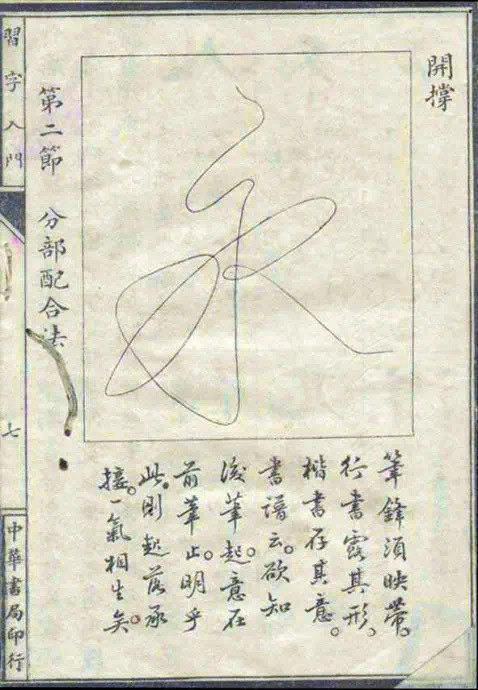 開撐
永
筆鋒須映帶。
行書露其形。
楷書存其意。
書譜云。欲知
後筆起意在
前筆止。明乎
此。則起落承
接。一氣相生矣。
第二節 分部配合法
習字入門
七
中華書局印行